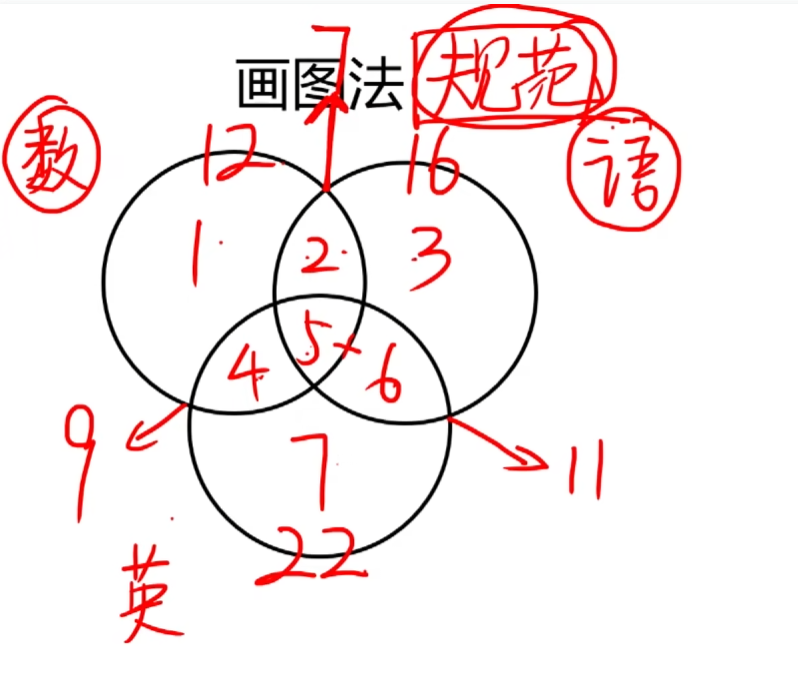 7
画图法 规范
数 12 16 语
1 2 3
5
4 6
9 7 11
22
英